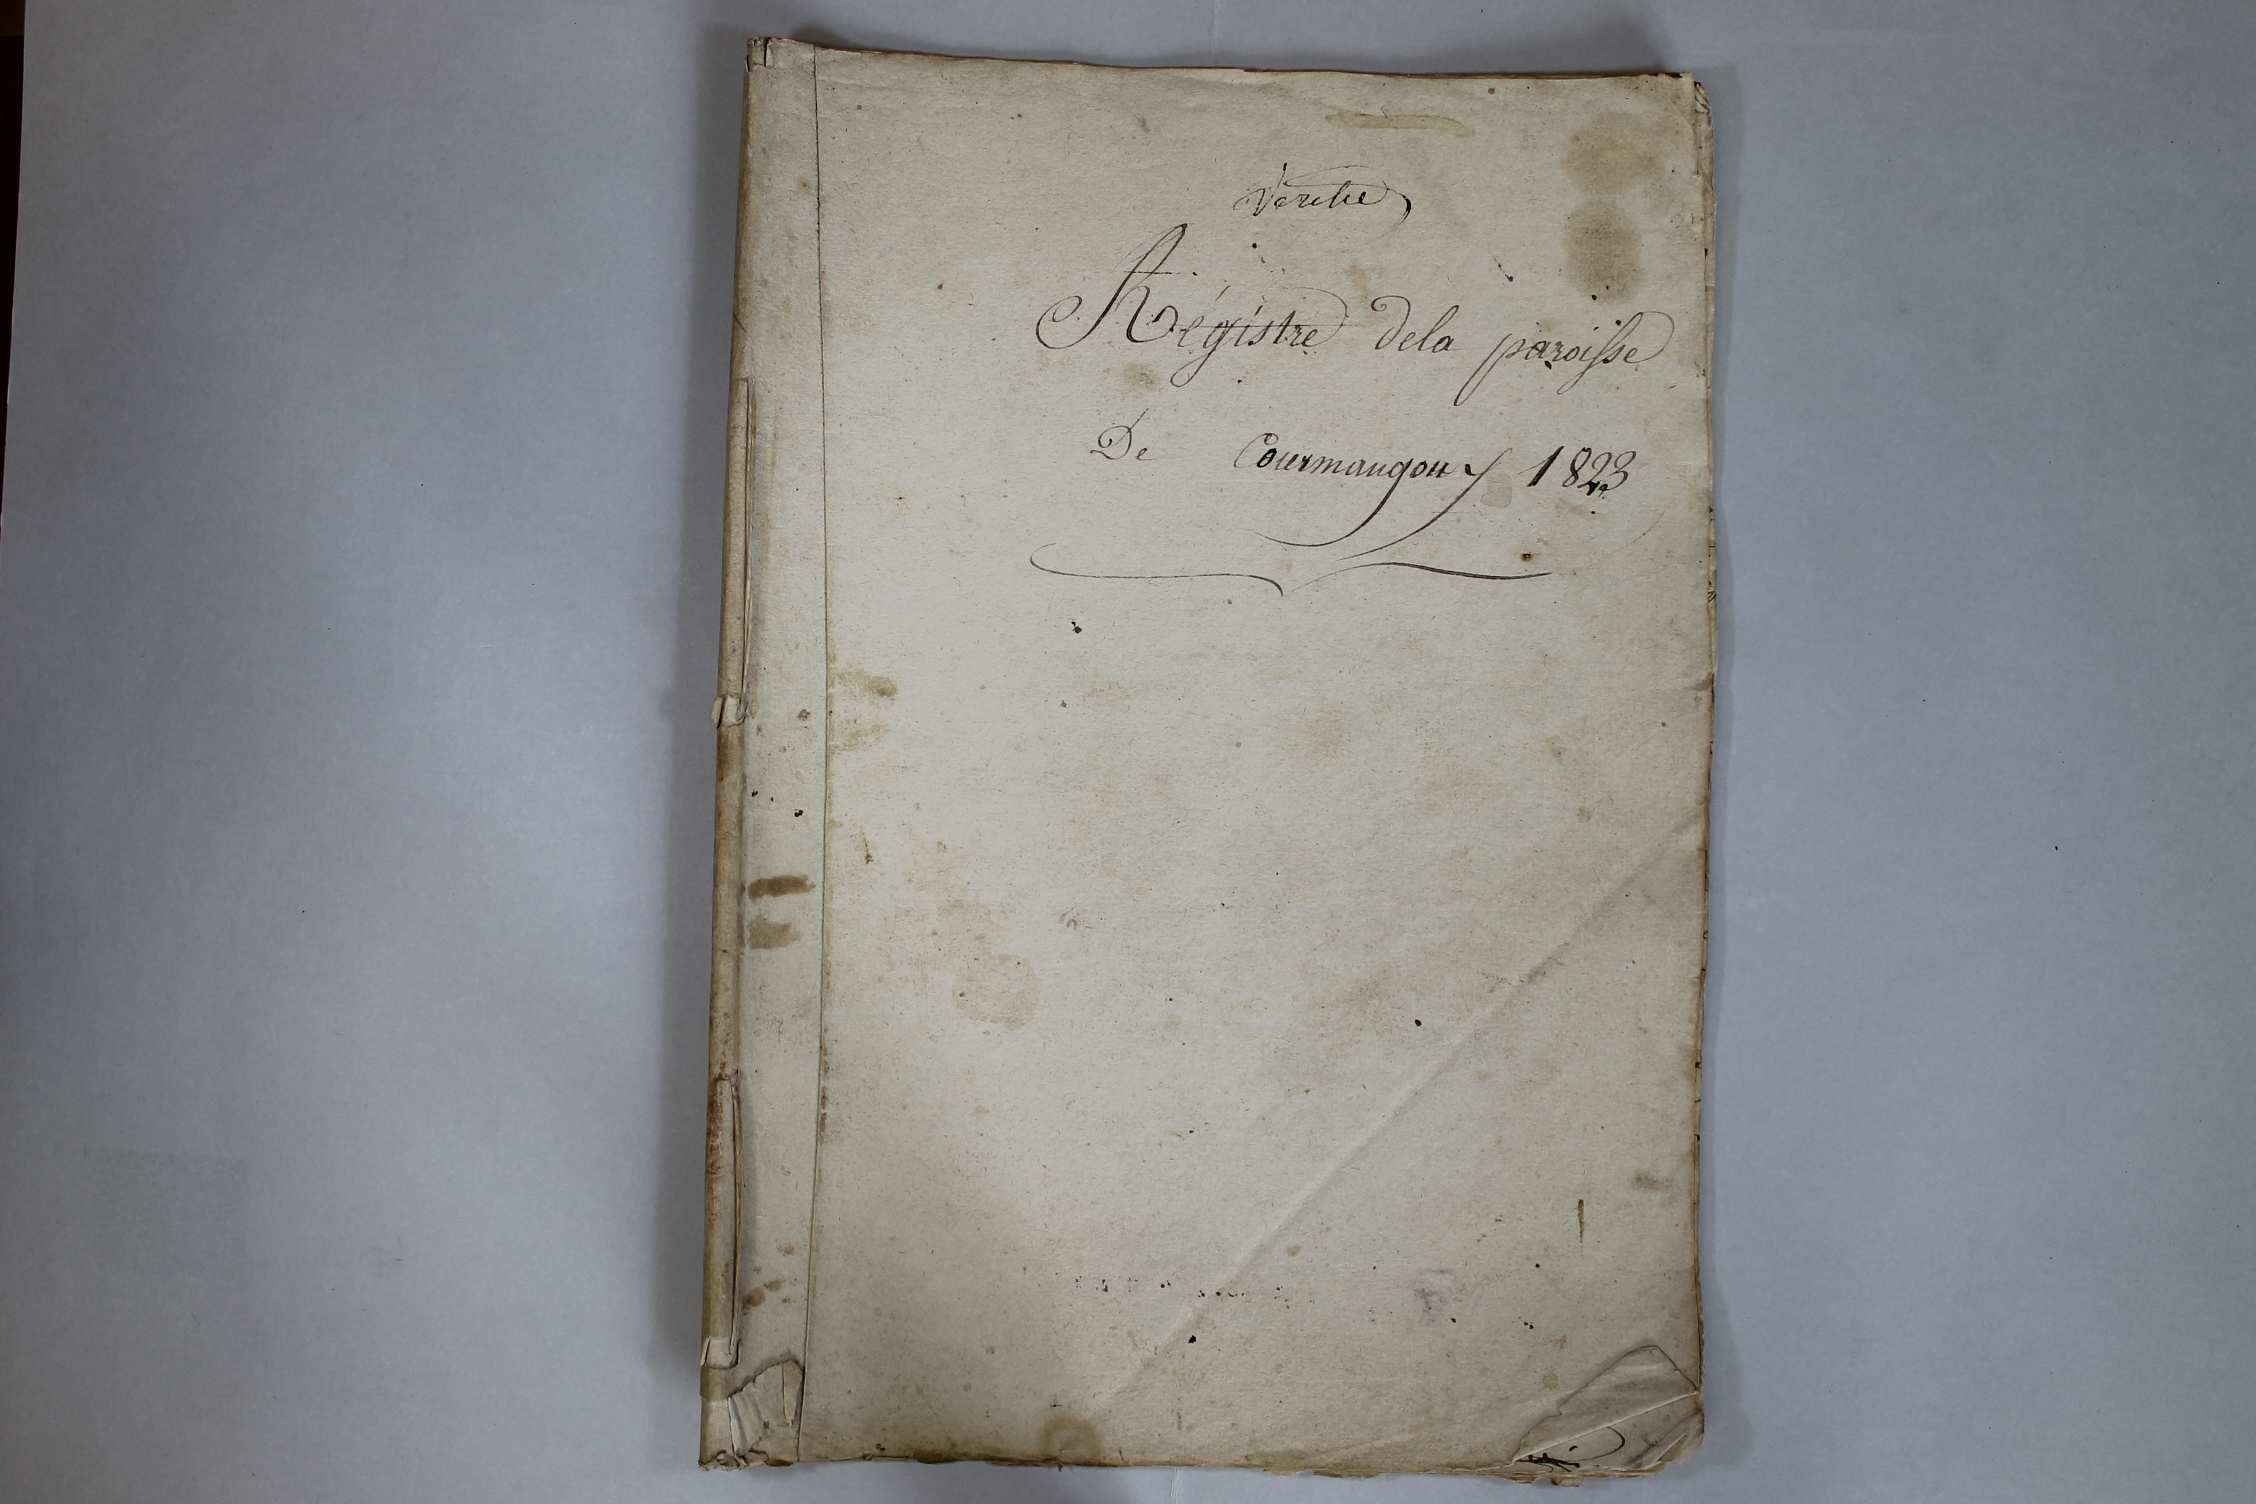 Régistre dela paroisse
De Courmangoux 1823